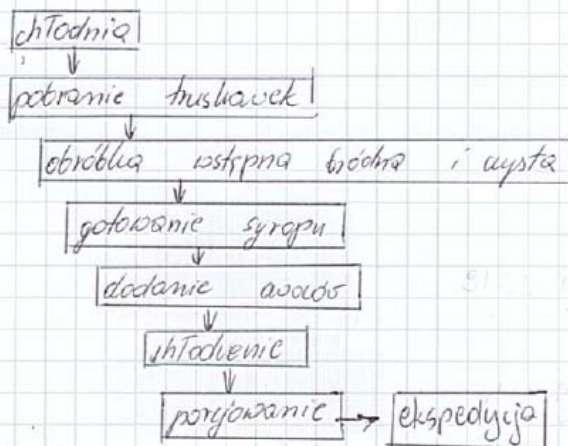 chłodnia
pobranie truskawek
obróbka wstępna bródna i czysta
gotowanie syropu
dodanie owoców
chłodzenie
porcjowanie → ekspedycja